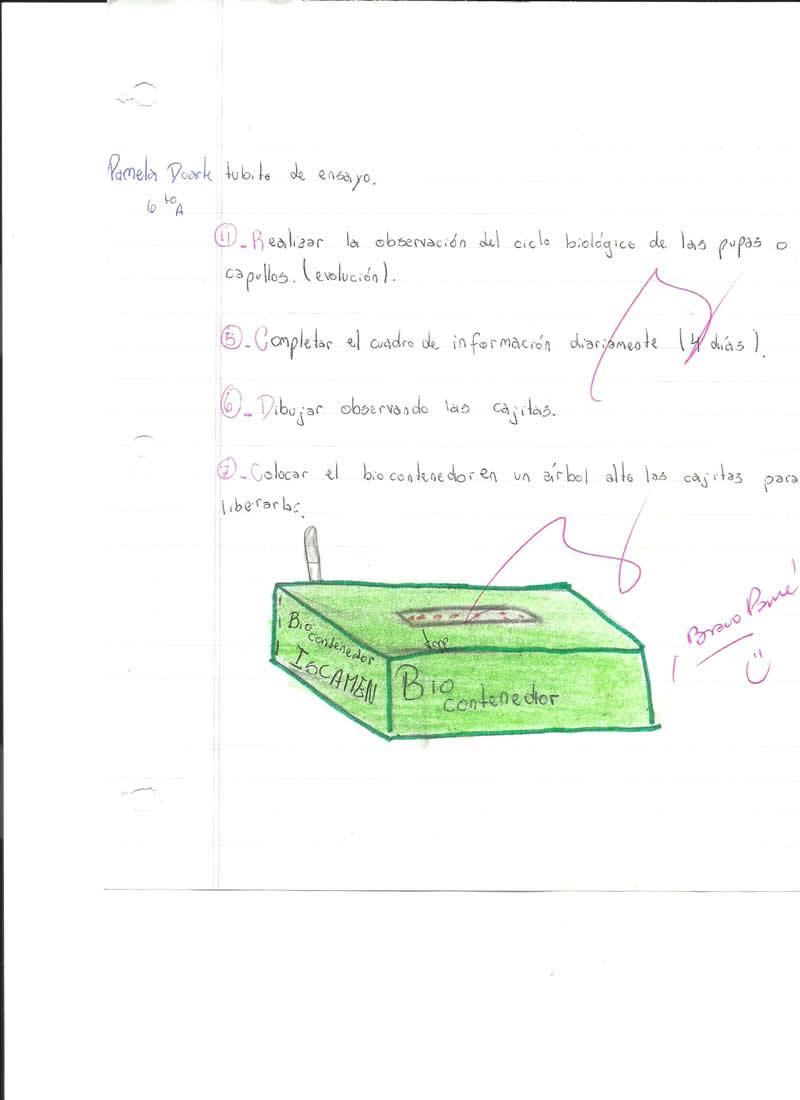 Pamela Duarte tubito de ensayo.
6 to A
11- Realizar la observación del ciclo biológico de las pupas o
capullos. (evolución).
5- Completar el cuadro de información diariamente (4 días).
6- Dibujar observando las cajitas.
7- Colocar el bio contenedor en un árbol alto las cajitas para
liberarlas.
Bio
contenedor
ISCAMEN
Bio
contenedor
Bravo Pame!